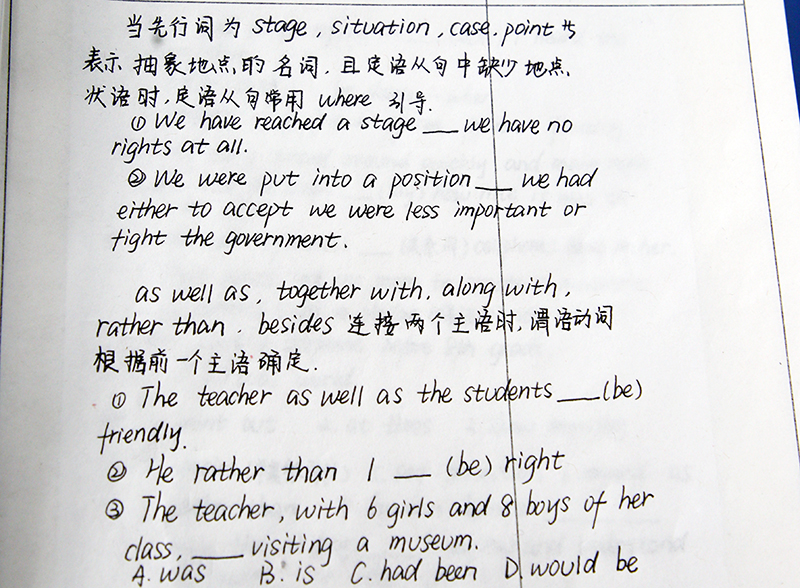 当先行词为 stage, situation, case, point 等
表示抽象地点的名词, 且定语从句中缺少地点
状语时, 定语从句常用 where 引导.
① We have reached a stage ___ we have no
rights at all.
② We were put into a position ___ we had
either to accept we were less important or
fight the government.
as well as, together with, along with,
rather than, besides 连接两个主语时, 谓语动词
根据前一个主语确定.
① The teacher as well as the students ___ (be)
friendly.
② He rather than I ___ (be) right
③ The teacher, with 6 girls and 8 boys of her
class, ___ visiting a museum.
A. was B. is C. had been D. would be